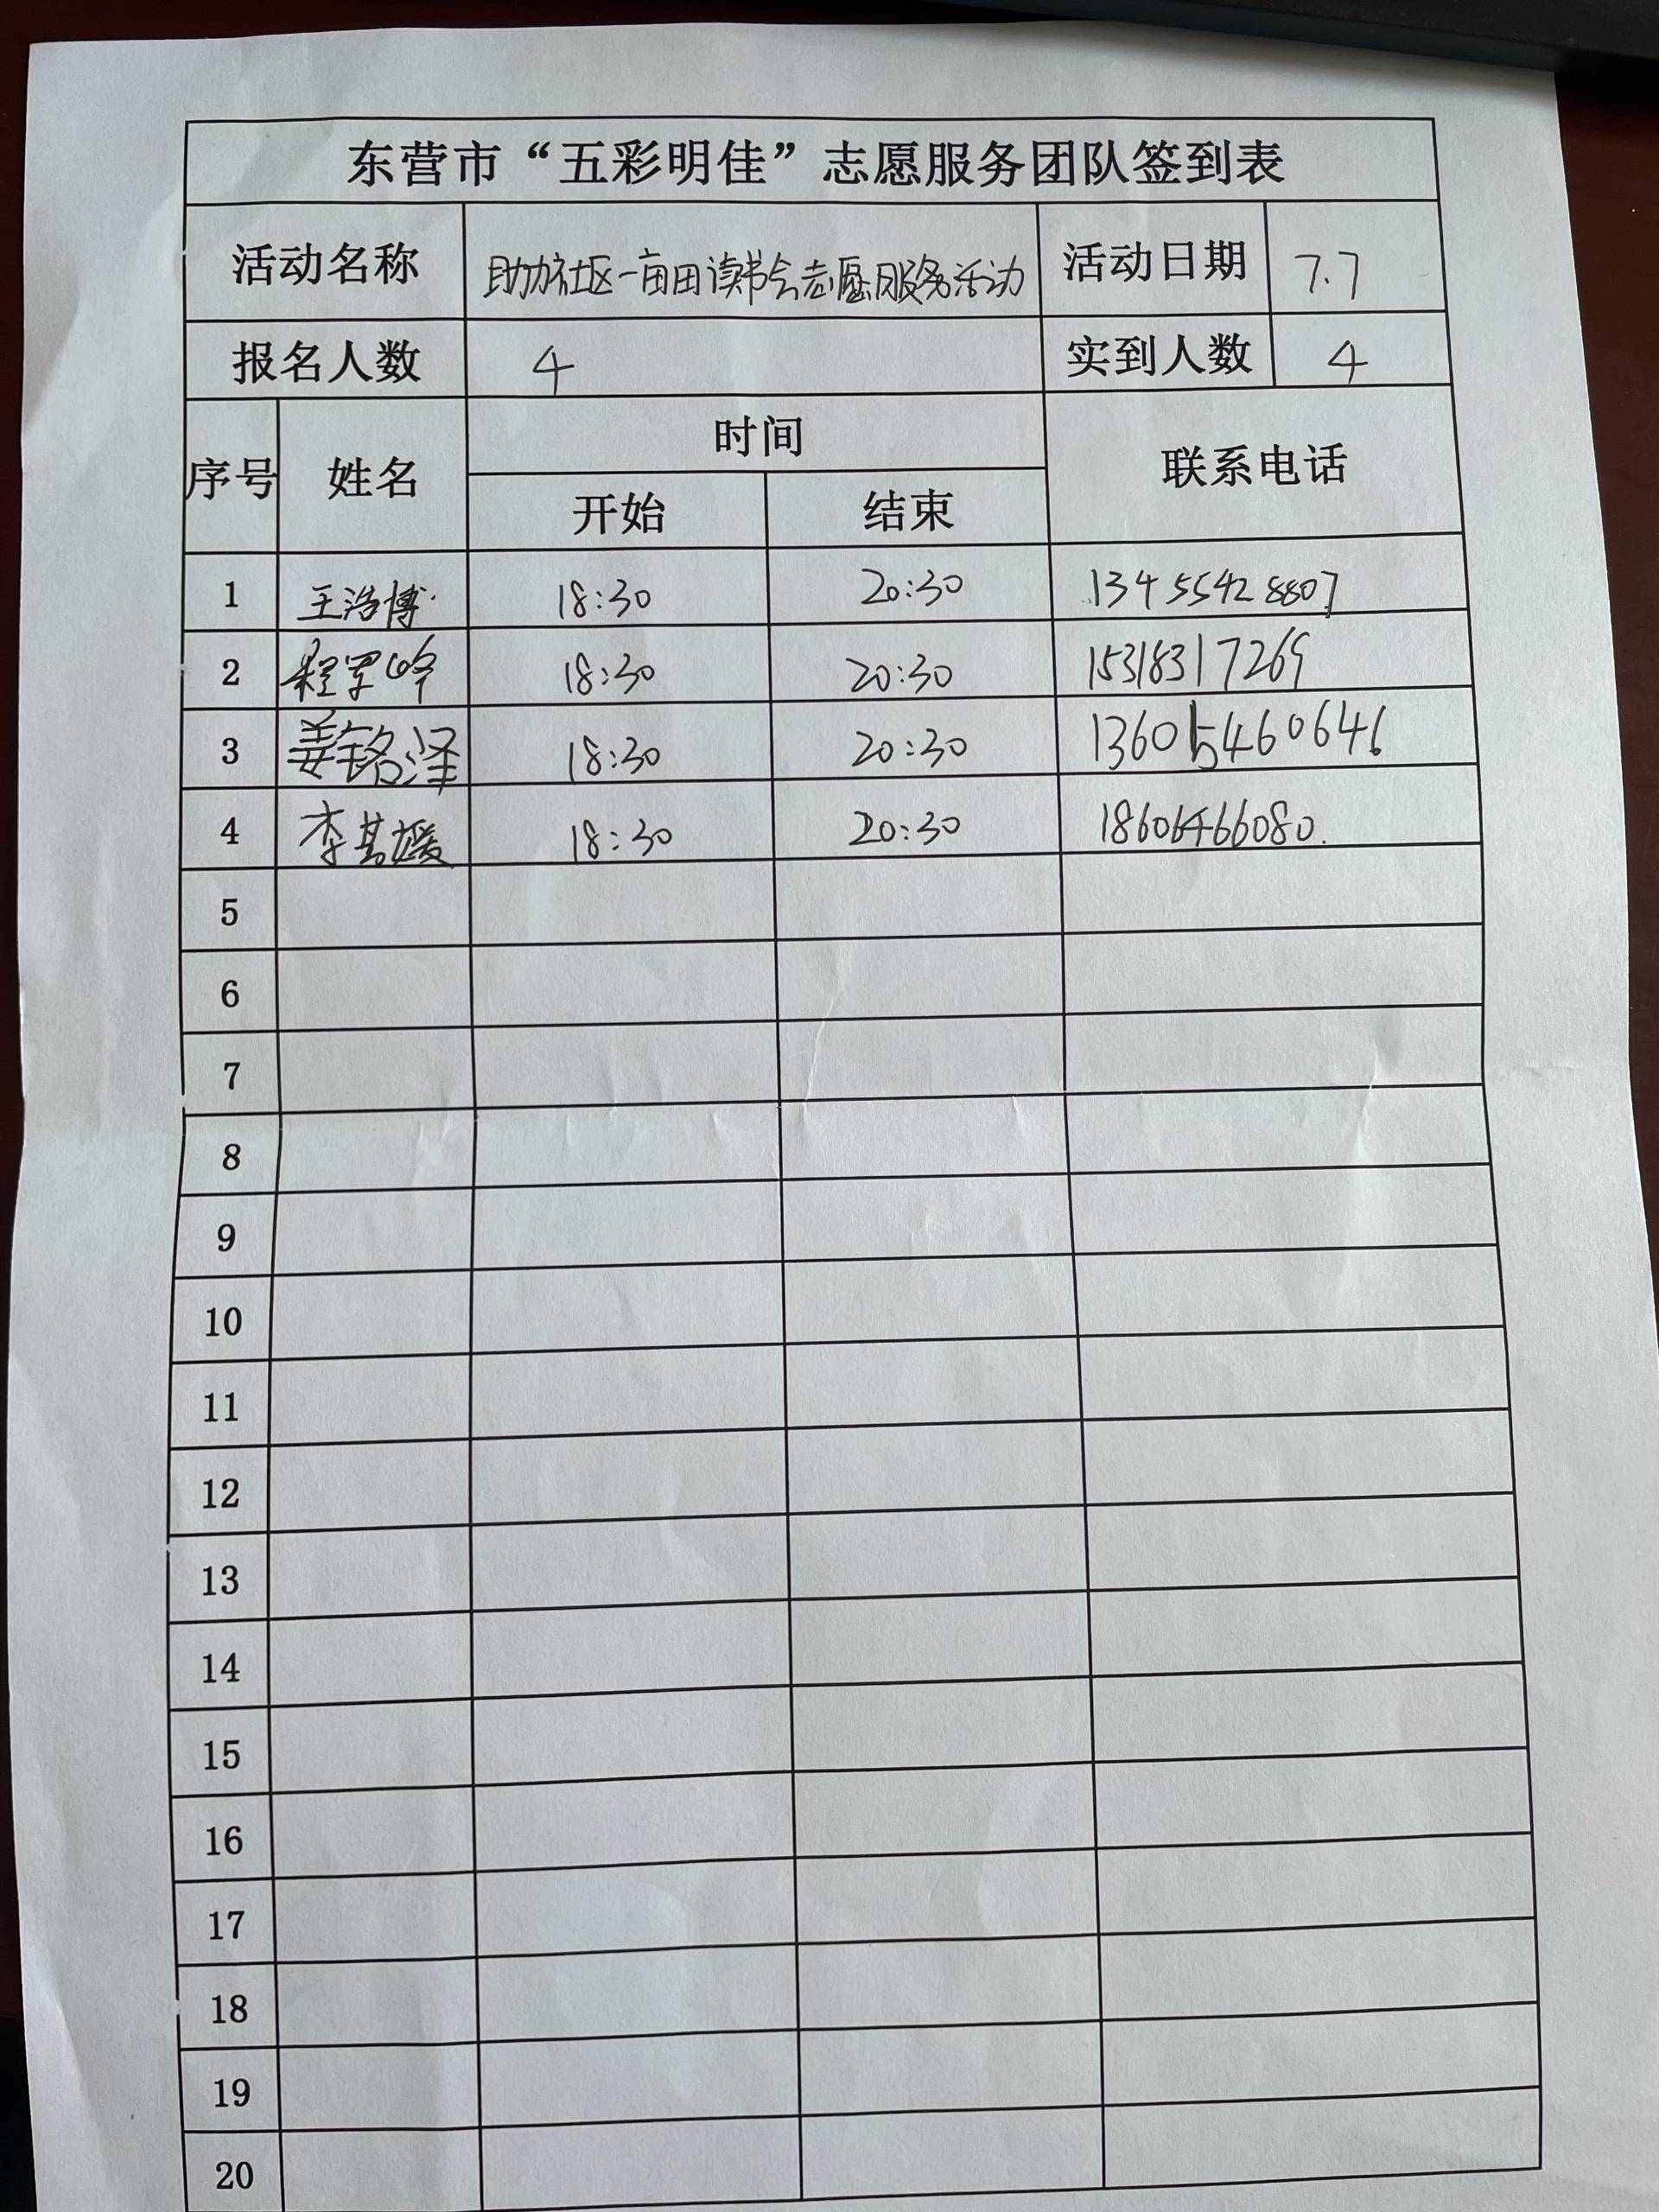 东营市“五彩明佳”志愿服务团队签到表
活动名称 助力社区一亩田读书会志愿服务活动 活动日期 7.7
报名人数 4 实到人数 4
序号 姓名 时间 联系电话
开始 结束
1 王浩博 18:30 20:30 13455428807
2 程军峰 18:30 20:30 15318317269
3 姜铭泽 18:30 20:30 13605460646
4 李其媛 18:30 20:30 18606466080.
5
6
7
8
9
10
11
12
13
14
15
16
17
18
19
20